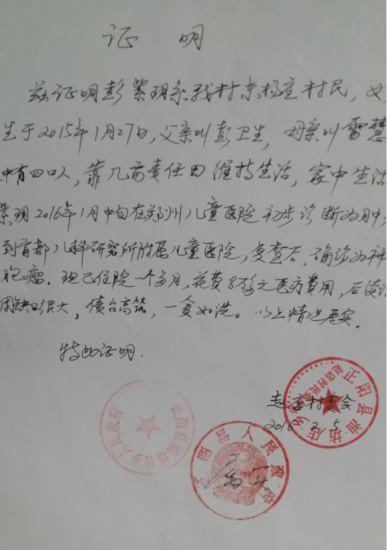 证 明
兹证明彭紫玥系我村东杨庄村民,
生于2015年1月27日,父亲叫彭卫生,母亲叫雷慧
中有四口人,靠几亩责任田维持生活,家中生活
紫玥2016年1月中旬在郑州儿童医院初步诊断为肿
到首都儿科研究所附属儿童医院,复查后,确诊为神
胞瘤.现已住院一个多月,花费8万多元医疗费用,后续
用缺口很大,债台高筑,一贫如洗。以上情况属实.
特此证明.
赵庄村委会
2016.2.5
正阳县油坊店乡
县人民政府